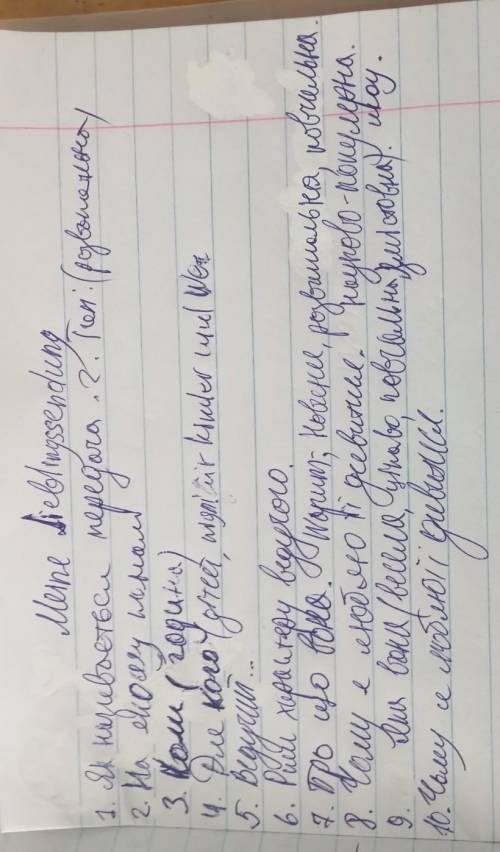 Meine Lieblingssendung
1. Як називається передача. 2. Тип: (розважальна)
2. На якому каналі
3. Коли (година)
4. Для кого (дітей, für Kinder und
5. Ведучий..
6. Риси характеру ведучого.
7. Про що вона. новини, розважальна, повчальна.
8. Чому я люблю її дивитися. науково-популярна.
9. яка вона (весела, цікаво, повчальна, змістовна). шоу.
10. Чому я люблю її дивитися.